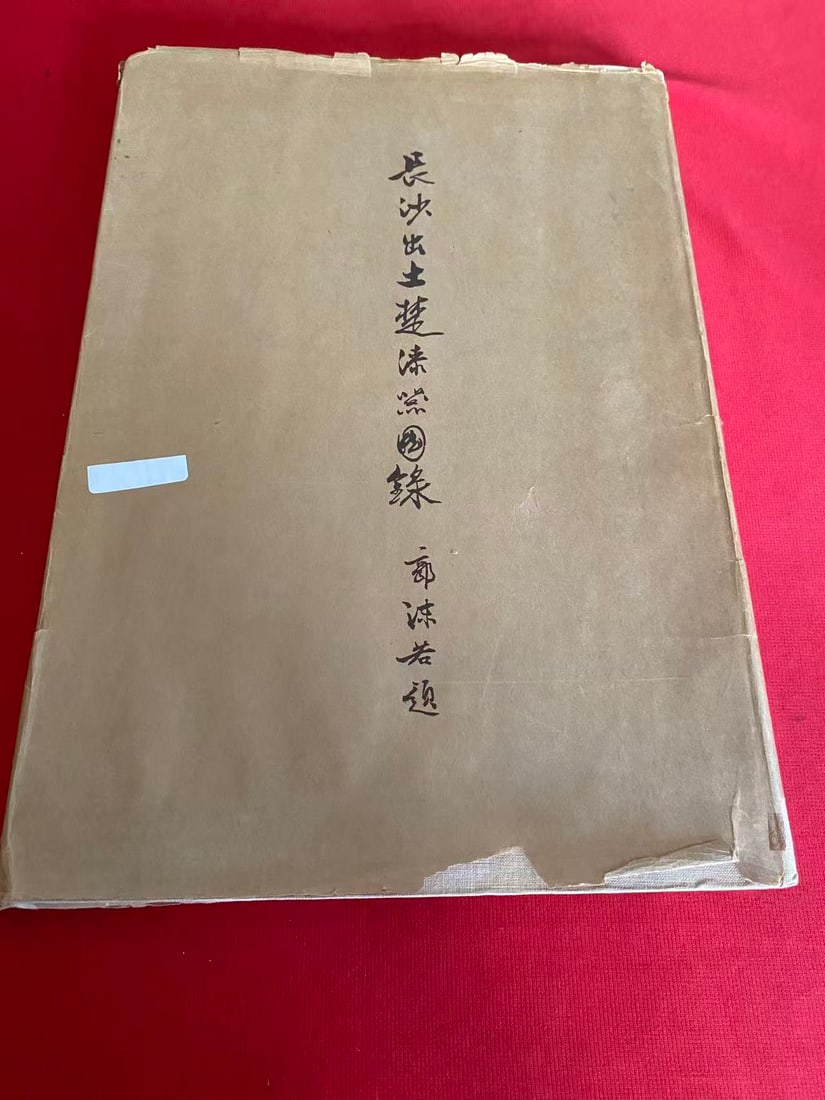 長沙出土楚漆器圖錄
郭沫若題